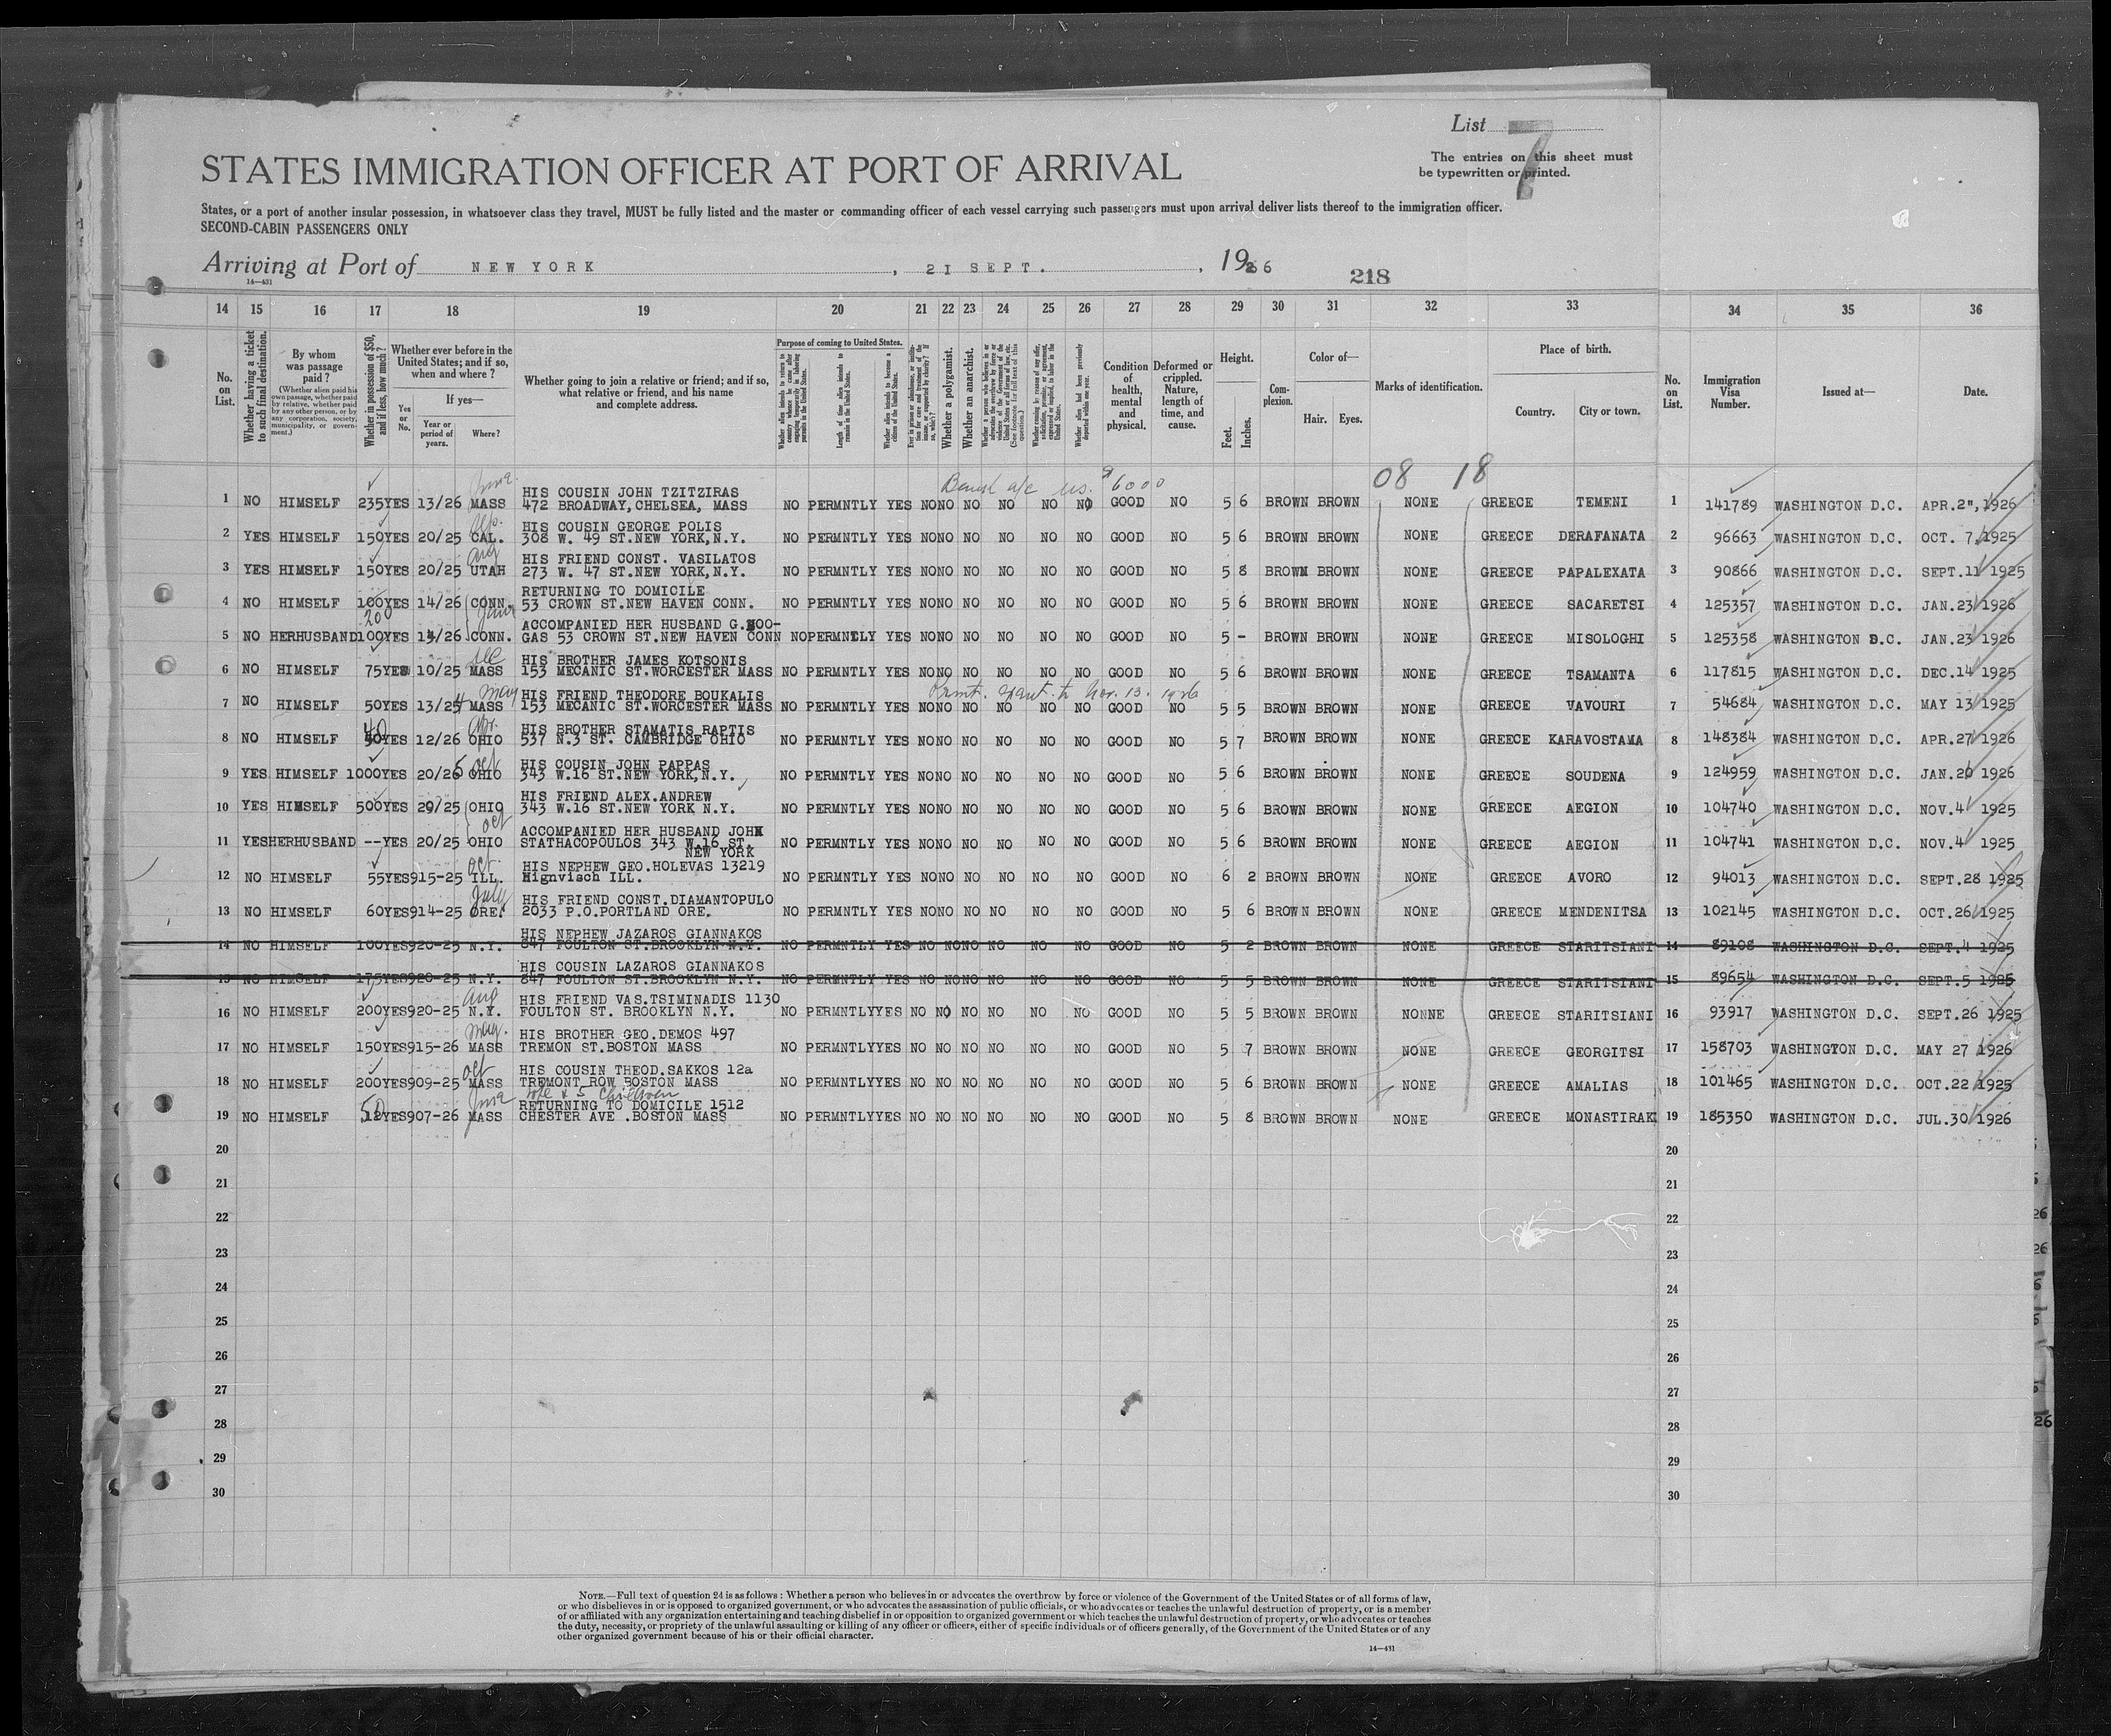 List 7
The entries on this sheet must
be typewritten or printed.
STATES IMMIGRATION OFFICER AT PORT OF ARRIVAL
States, or a port of another insular possession, in whatsoever class they travel, MUST be fully listed and the master or commanding officer of each vessel carrying such passengers must upon arrival deliver lists thereof to the immigration officer.
SECOND-CABIN PASSENGERS ONLY
Arriving at Port of NEW YORK, 21 SEPT., 1926
14—431
218
14 15 16 17 18 19 20 21 22 23 24 25 26 27 28 29 30 31 32 33 34 35 36
No. on List.
Whether having a ticket to such final destination.
By whom was passage paid?
(Whether alien paid his own passage, whether paid by relative, whether paid by any other person, or by any corporation, society, municipality, or government.)
Whether in possession of $50, and if less, how much?
Whether ever before in the United States; and if so, when and where?
Yes or No.
If yes—
Year or period of years.
Where?
Whether going to join a relative or friend; and if so, what relative or friend, and his name and complete address.
Purpose of coming to United States.
Length of time alien intends to remain in the United States.
Whether alien intends to become a citizen of the United States.
Whether a polygamist.
Whether an anarchist.
Condition of health, mental and physical.
Deformed or crippled. Nature, length of time, and cause.
Height.
Feet. Inches.
Complexion.
Color of—
Hair. Eyes.
Marks of identification.
Place of birth.
Country. City or town.
No. on List.
Immigration Visa Number.
Issued at—
Date.
08 18
$6000
HIS COUSIN JOHN TZITZIRAS
1 NO HIMSELF 235 YES 13/26 MASS 472 BROADWAY, CHELSEA, MASS NO PERMNTLY YES NO NO NO NO NO NO GOOD NO 5 6 BROWN BROWN NONE GREECE TEMENI 1 141789 WASHINGTON D.C. APR.2", 1926
HIS COUSIN GEORGE POLIS
2 YES HIMSELF 150 YES 20/25 CAL. 308 W. 49 ST.NEW YORK,N.Y. NO PERMNTLY YES NO NO NO NO NO NO GOOD NO 5 6 BROWN BROWN NONE GREECE DERAFANATA 2 96663 WASHINGTON D.C. OCT. 7, 1925
HIS FRIEND CONST. VASILATOS
3 YES HIMSELF 150 YES 20/25 UTAH 273 W. 47 ST.NEW YORK,N.Y. NO PERMNTLY YES NO NO NO NO NO NO GOOD NO 5 8 BROWN BROWN NONE GREECE PAPALEXATA 3 90866 WASHINGTON D.C. SEPT.11 1925
RETURNING TO DOMICILE
4 NO HIMSELF 100 YES 14/26 CONN. 53 CROWN ST.NEW HAVEN CONN. NO PERMNTLY YES NO NO NO NO NO NO GOOD NO 5 6 BROWN BROWN NONE GREECE SACARETSI 4 125357 WASHINGTON D.C. JAN.23 1926
200
ACCOMPANIED HER HUSBAND G.ZOO-
5 NO HERHUSBAND 100 YES 14/26 CONN. GAS 53 CROWN ST.NEW HAVEN CONN NO PERMNTLY YES NO NO NO NO NO NO GOOD NO 5 - BROWN BROWN NONE GREECE MISOLOGHI 5 125358 WASHINGTON D.C. JAN.23 1926
Dec
HIS BROTHER JAMES KOTSONIS
6 NO HIMSELF 75 YES 10/25 MASS 153 MECANIC ST.WORCESTER MASS NO PERMNTLY YES NO NO NO NO NO NO GOOD NO 5 6 BROWN BROWN NONE GREECE TSAMANTA 6 117815 WASHINGTON D.C. DEC.14 1925
May
HIS FRIEND THEODORE BOUKALIS Permt. Grant. to Nov. 13. 1926
7 NO HIMSELF 50 YES 13/25 MASS 153 MECANIC ST.WORCESTER MASS NO PERMNTLY YES NO NO NO NO NO NO GOOD NO 5 5 BROWN BROWN NONE GREECE VAVOURI 7 54684 WASHINGTON D.C. MAY 13 1925
40 Apr.
HIS BROTHER STAMATIS RAPTIS
8 NO HIMSELF 50 YES 12/26 OHIO 537 N.3 ST. CAMBRIDGE OHIO NO PERMNTLY YES NO NO NO NO NO NO GOOD NO 5 7 BROWN BROWN NONE GREECE KARAVOSTAMA 8 148384 WASHINGTON D.C. APR.27 1926
Oct
HIS COUSIN JOHN PAPPAS
9 YES HIMSELF 1000 YES 20/26 OHIO 343 W.16 ST.NEW YORK,N.Y. NO PERMNTLY YES NO NO NO NO NO NO GOOD NO 5 6 BROWN BROWN NONE GREECE SOUDENA 9 124959 WASHINGTON D.C. JAN.20 1926
HIS FRIEND ALEX.ANDREW
10 YES HIMSELF 500 YES 20/25 OHIO 343 W.16 ST.NEW YORK N.Y. NO PERMNTLY YES NO NO NO NO NO NO GOOD NO 5 6 BROWN BROWN NONE GREECE AEGION 10 104740 WASHINGTON D.C. NOV.4 1925
Oct
ACCOMPANIED HER HUSBAND JOHN
11 YES HERHUSBAND -- YES 20/25 OHIO STATHACOPOULOS 343 W.16 ST. NO PERMNTLY YES NO NO NO NO NO NO GOOD NO 5 6 BROWN BROWN NONE GREECE AEGION 11 104741 WASHINGTON D.C. NOV.4 1925
NEW YORK
Oct.
HIS NEPHEW GEO.HOLEVAS 13219
12 NO HIMSELF 55 YES 915-25 ILL. Hignvisch ILL. NO PERMNTLY YES NO NO NO NO NO NO GOOD NO 6 2 BROWN BROWN NONE GREECE AVORO 12 94013 WASHINGTON D.C. SEPT.28 1925
July
HIS FRIEND CONST.DIAMANTOPULO
13 NO HIMSELF 60 YES 914-25 ORE. 2033 P.O.PORTLAND ORE. NO PERMNTLY YES NO NO NO NO NO NO GOOD NO 5 6 BROWN BROWN NONE GREECE MENDENITSA 13 102145 WASHINGTON D.C. OCT.26 1925
HIS NEPHEW JAZAROS GIANNAKOS
14 NO HIMSELF 100 YES 920-25 N.Y. 847 FOULTON ST.BROOKLYN N.Y. NO PERMNTLY YES NO NO NO NO NO NO GOOD NO 5 2 BROWN BROWN NONE GREECE STARITSIANI 14 89108 WASHINGTON D.C. SEPT.4 1925
HIS COUSIN LAZAROS GIANNAKOS
15 NO HIMSELF 175 YES 920-25 N.Y. 847 FOULTON ST.BROOKLYN N.Y. NO PERMNTLY YES NO NO NO NO NO NO GOOD NO 5 5 BROWN BROWN NONE GREECE STARITSIANI 15 89654 WASHINGTON D.C. SEPT.5 1925
Aug
HIS FRIEND VAS.TSIMINADIS 1130
16 NO HIMSELF 200 YES 920-25 N.Y. FOULTON ST. BROOKLYN N.Y. NO PERMNTLY YES NO NO NO NO NO NO GOOD NO 5 5 BROWN BROWN NONNE GREECE STARITSIANI 16 93917 WASHINGTON D.C. SEPT.26 1925
May.
HIS BROTHER GEO.DEMOS 497
17 NO HIMSELF 150 YES 915-26 MASS TREMON ST.BOSTON MASS NO PERMNTLY YES NO NO NO NO NO NO GOOD NO 5 7 BROWN BROWN NONE GREECE GEORGITSI 17 158703 WASHINGTON D.C. MAY 27 1926
Oct
HIS COUSIN THEOD.SAKKOS 12a
18 NO HIMSELF 200 YES 909-25 MASS TREMONT ROW BOSTON MASS NO PERMNTLY YES NO NO NO NO NO NO GOOD NO 5 6 BROWN BROWN NONE GREECE AMALIAS 18 101465 WASHINGTON D.C. OCT.22 1925
50 June wife & 5 children
RETURNING TO DOMICILE 1512
19 NO HIMSELF 12 YES 907-26 MASS CHESTER AVE .BOSTON MASS NO PERMNTLY YES NO NO NO NO NO NO GOOD NO 5 8 BROWN BROWN NONE GREECE MONASTIRAK 19 185350 WASHINGTON D.C. JUL.30 1926
20 20
21 21
22 22
23 23
24 24
25 25
26 26
27 27
28 28
29 29
30 30
NOTE.—Full text of question 24 is as follows: Whether a person who believes in or advocates the overthrow by force or violence of the Government of the United States or of all forms of law,
or who disbelieves in or is opposed to organized government, or who advocates the assassination of public officials, or who advocates or teaches the unlawful destruction of property, or is a member
of or affiliated with any organization entertaining and teaching disbelief in or opposition to organized government or which teaches the unlawful destruction of property, or who advocates or teaches
the duty, necessity, or propriety of the unlawful assaulting or killing of any officer or officers, either of specific individuals or of officers generally, of the Government of the United States or of any
other organized government because of his or their official character.
14—431